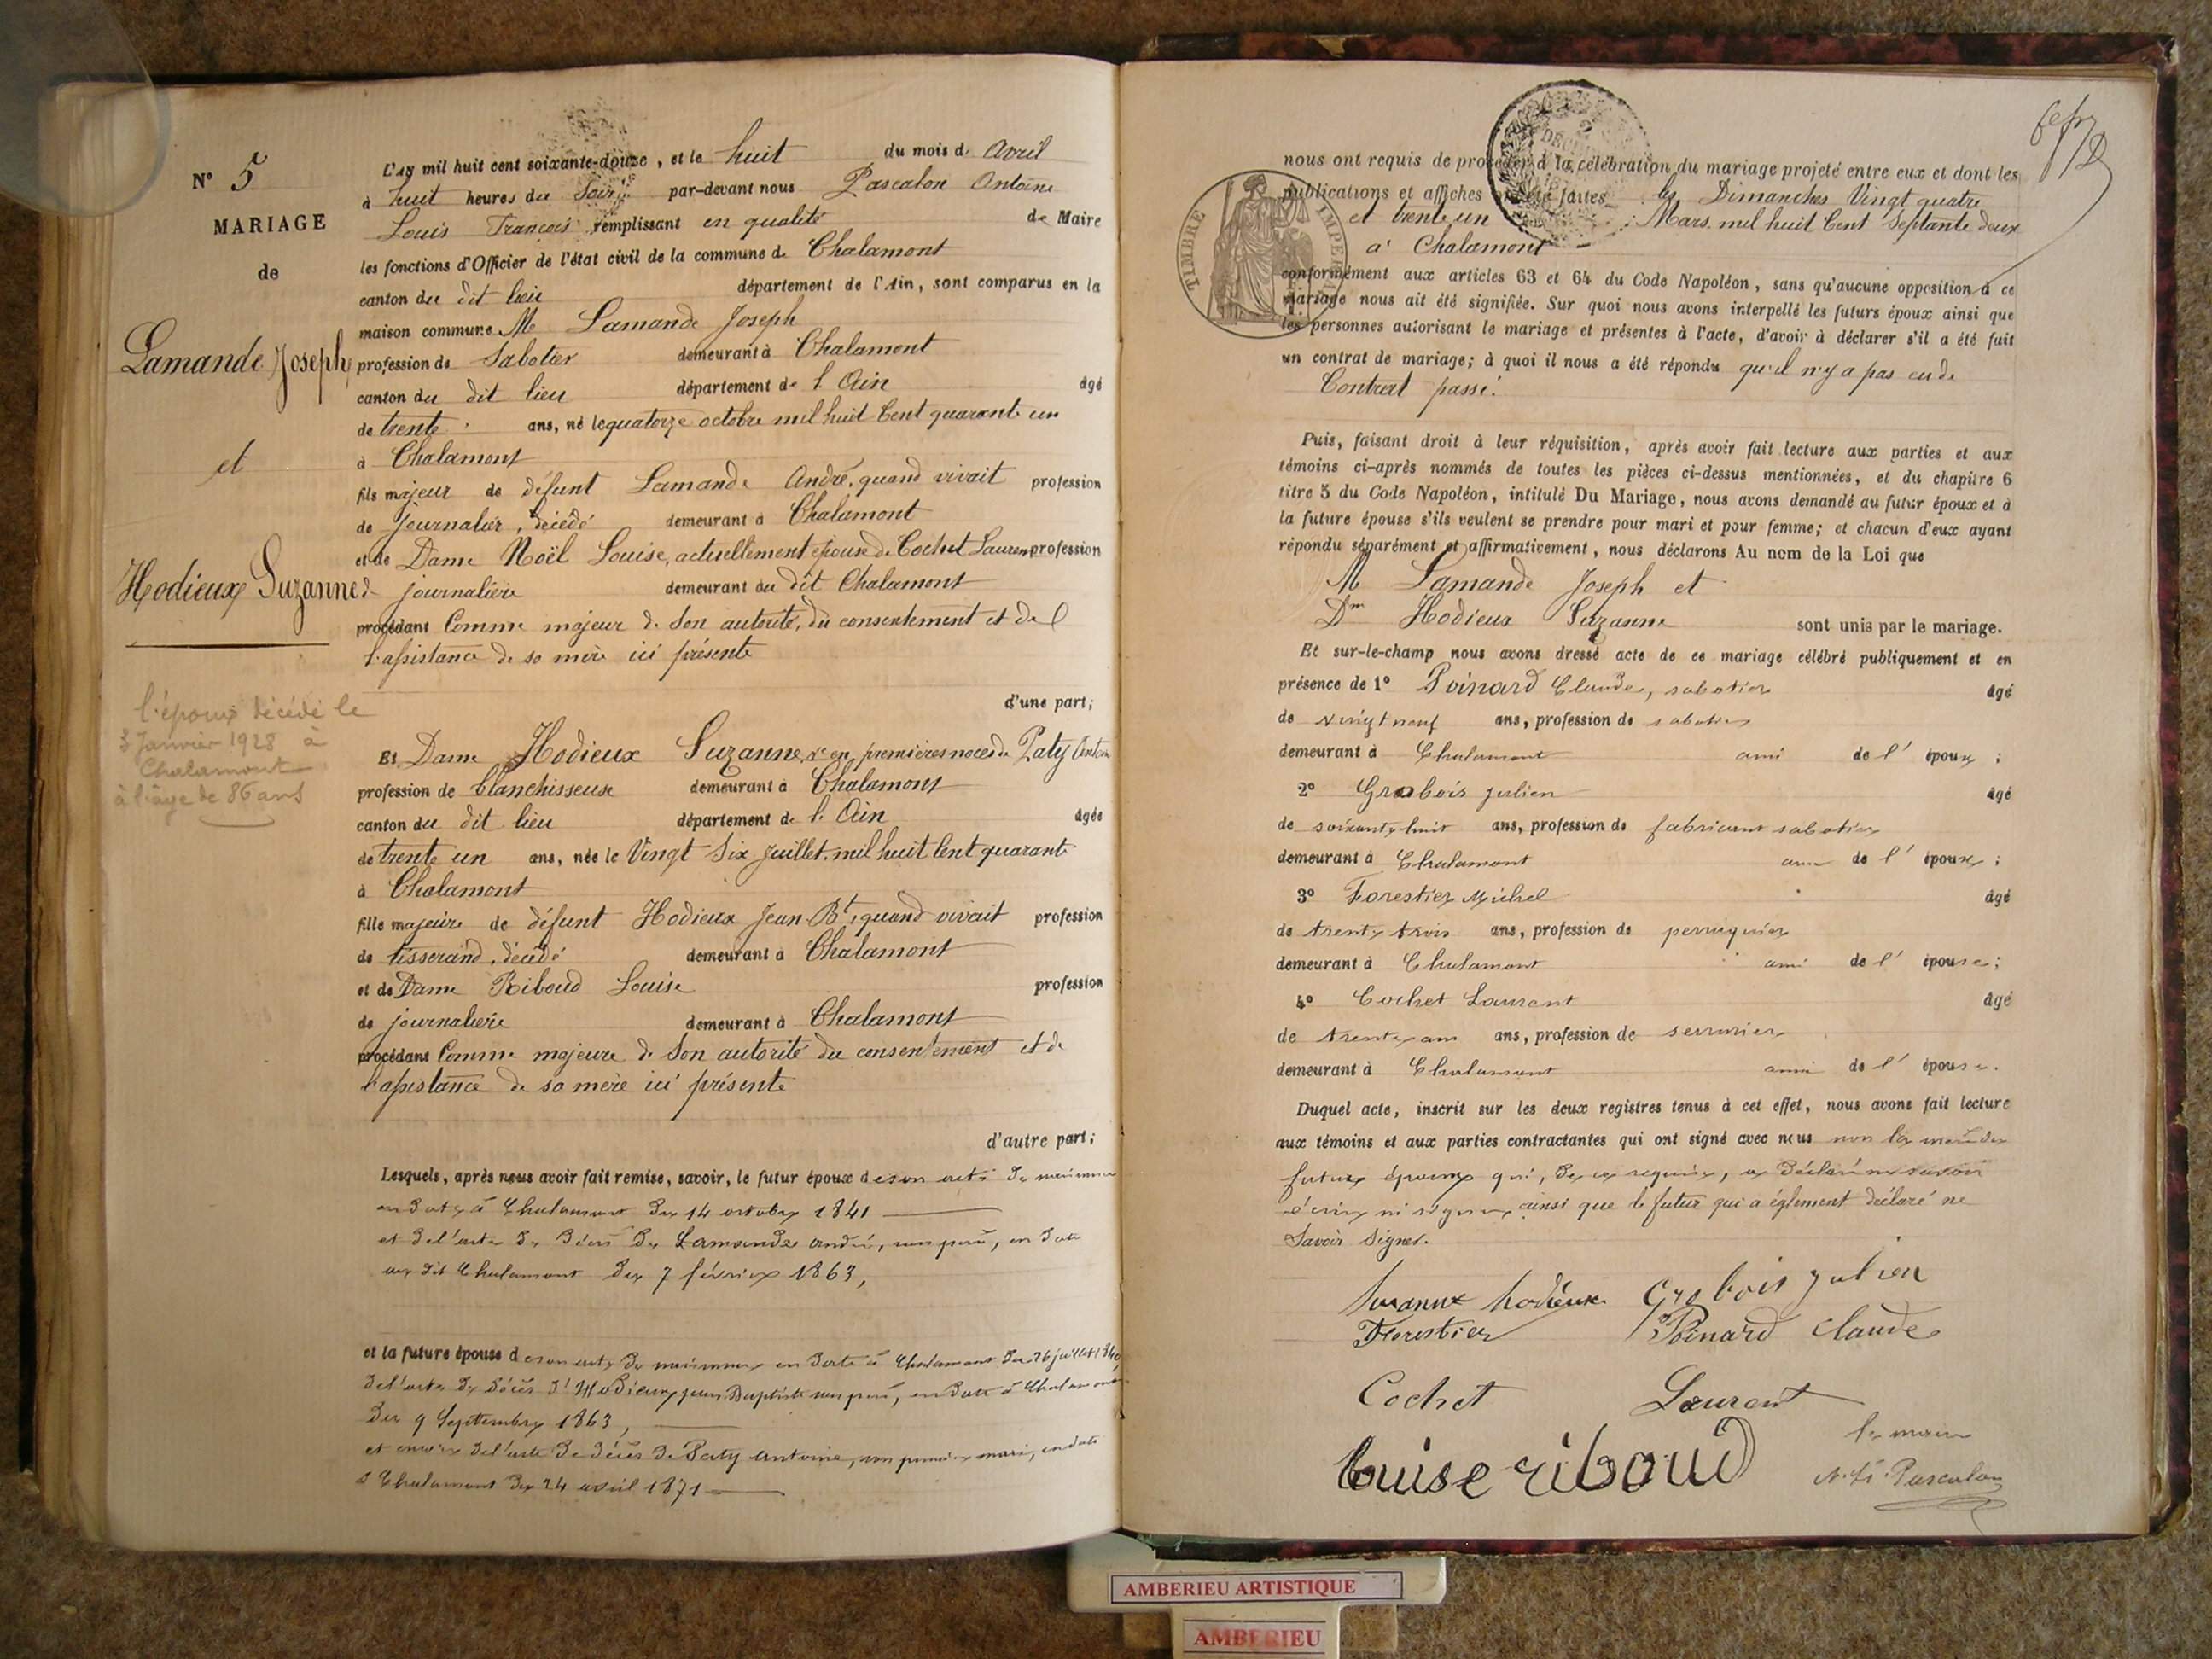 N° 5
MARIAGE
de
Lamande Joseph
et
Hodieux Suzanne
l'époux décédé le
3 Janvier 1928 à
Chalamont
à l'âge de 86 ans
L'an mil huit cent soixante-douze, et le huit du mois d' Avril
à huit heures du Soir par-devant nous Pascalon Antoine
Louis François remplissant en qualité de Maire
les fonctions d'Officier de l'état civil de la commune de Chalamont
canton du dit lieu département de l'Ain, sont comparus en la
maison commune Mr Lamande Joseph
profession de Sabotier demeurant à Chalamont
canton du dit lieu département de l'Ain âgé
de trente ans, né le quatorze octobre mil huit Cent quarante un
à Chalamont
fils majeur de défunt Lamande André, quand vivait profession
de journalier, décédé demeurant à Chalamont
et de Dame Noël Louise, actuellement épouse de Cochet Laurent profession
de journalière demeurant au dit Chalamont
procédant Comme majeur de Son autorité, du consentement et de l
l'assistance de sa mère ici présente
d'une part;
Et Dame Hodieux Suzanne, ve en premières noces de Paty Antoine
profession de blanchisseuse demeurant à Chalamont
canton du dit lieu département de l'Ain âgée
de trente un ans, née le Vingt Six Juillet mil huit Cent quarante
à Chalamont
fille majeure de défunt Hodieux Jean Bt, quand vivait profession
de tisserand, décédé demeurant à Chalamont
et de Dame Riboud Louise profession
de journalière demeurant à Chalamont
procédant Comme majeure de Son autorité du consentement et de
l'assistance de sa mère ici présente
d'autre part;
Lesquels, après nous avoir fait remise, savoir, le futur époux de son acte de naissance
en date à Chalamont du 14 octobre 1841
et de l'acte de décès de Lamande andré, son père, en date
au dit Chalamont du 7 février 1863,
et la future épouse de son acte de naissance en date à Chalamont du 26 juillet 1840,
de l'acte de décès d'Hodieux jean Baptiste son père, en date à Chalamont
du 9 Septembre 1863,
et encore de l'acte de décès de Paty antoine, son premier mari, en date
à Chalamont du 24 avril 1871
nous ont requis de procéder à la célébration du mariage projeté entre eux et dont les
publications et affiches ont été faites les Dimanches Vingt quatre
et trente un Mars mil huit Cent Septante deux
à Chalamont
TIMBRE IMPERIAL
conformément aux articles 63 et 64 du Code Napoléon, sans qu'aucune opposition à ce
mariage nous ait été signifiée. Sur quoi nous avons interpellé les futurs époux ainsi que
les personnes autorisant le mariage et présentes à l'acte, d'avoir à déclarer s'il a été fait
un contrat de mariage; à quoi il nous a été répondu qu'il n'y a pas eu de
Contrat passé.
Puis, faisant droit à leur réquisition, après avoir fait lecture aux parties et aux
témoins ci-après nommés de toutes les pièces ci-dessus mentionnées, et du chapitre 6
titre 5 du Code Napoléon, intitulé Du Mariage, nous avons demandé au futur époux et à
la future épouse s'ils veulent se prendre pour mari et pour femme; et chacun d'eux ayant
répondu séparément et affirmativement, nous déclarons Au nom de la Loi que
Mr Lamande Joseph et
Dme Hodieux Suzanne sont unis par le mariage.
Et sur-le-champ nous avons dressé acte de ce mariage célébré publiquement et en
présence de 1° Poinard Claude, sabotier âgé
de vingt neuf ans, profession de sabotier
demeurant à Chalamont ami de l'époux;
2° Grobois julien âgé
de soixante huit ans, profession de fabricant sabotier
demeurant à Chalamont ami de l'époux;
3° Forestier Michel âgé
de trente trois ans, profession de perruquier
demeurant à Chalamont ami de l'épouse;
4° Cochet Laurent âgé
de trente un ans, profession de serrurier
demeurant à Chalamont ami de l'épouse.
Duquel acte, inscrit sur les deux registres tenus à cet effet, nous avons fait lecture
aux témoins et aux parties contractantes qui ont signé avec nous non la mère du
futur époux qui, de ce requise, a déclaré ne savoir
écrire ni signer, ainsi que le futur qui a églement déclaré ne
Savoir Signer.
Suzanne hodieux Grobois julien
Forestier Poinard Claude
Cochet Laurent
louise riboud le maire
Pascalon
AMBERIEU ARTISTIQUE
AMBERIEU